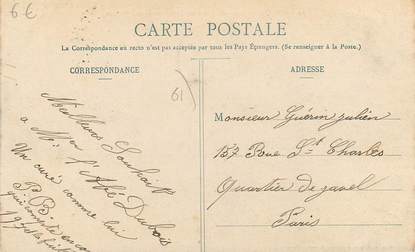 6€
CARTE POSTALE
La Correspondance au recto n'est pas acceptée par tous les Pays Étrangers. (Se renseigner à la Poste.)
CORRESPONDANCE
ADRESSE
61
Meilleurs Souhaits
a Mr l'Abé Dubois
Un curé comme lui
P.P.
Monsieur Guérin julien
157 Rue St Charles
Quartier de javel
Paris